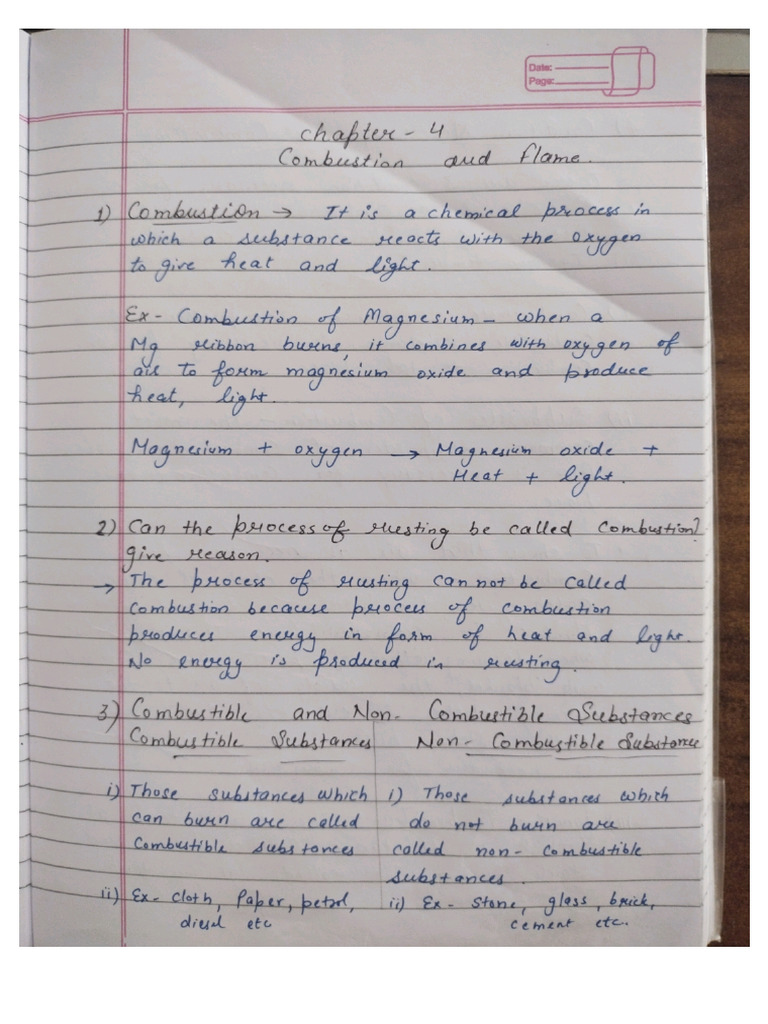 Date:
Page:
Chapter - 4
Combustion and flame.
1) Combustion → It is a chemical process in
which a substance reacts with the oxygen
to give heat and light.
Ex - Combustion of Magnesium - when a
Mg ribbon burns, it combines with oxygen of
air to form magnesium oxide and produce
heat, light.
Magnesium + oxygen → Magnesium oxide +
Heat + light.
2) Can the process of rusting be called Combustion?
give reason.
→ The process of rusting can not be called
Combustion because process of combustion
produces energy in form of heat and light.
No energy is produced in rusting.
3) Combustible and Non- Combustible Substances
Combustible Substances Non- Combustible Substance
i) Those substances which i) Those substances which
can burn are called do not burn are
Combustible substances called non- combustible
substances.
ii) Ex- cloth, Paper, petrol, ii) Ex- Stone, glass, brick,
diesel etc cement etc.